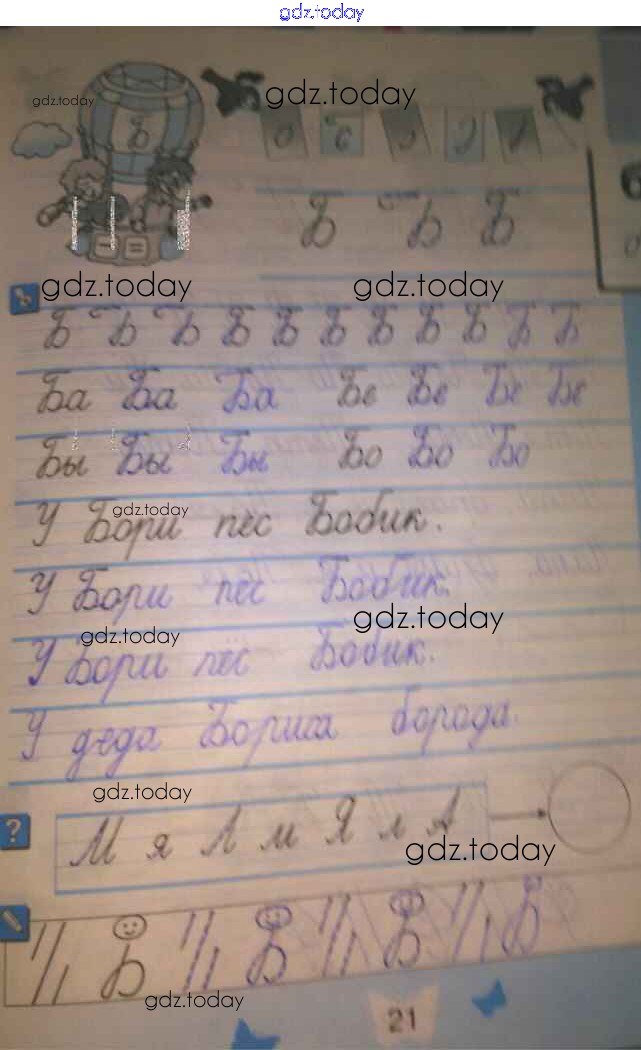 gdz.today
gdz.today
gdz.today
Б
Б Б Б
gdz.today gdz.today
Б Б Б Б Б Б Б Б Б Б Б
Ба Ба Ба Бе Бе Бе Бе
Бы Бы Бы Бо Бо Бо
gdz.today
У Бори пёс Бобик.
У Бори пёс Бобик.
gdz.today
gdz.today
У Бори пёс Бобик.
У деда Бориса борода.
gdz.today
М я Л м Я л А
gdz.today
Б Б Б Б
gdz.today
21